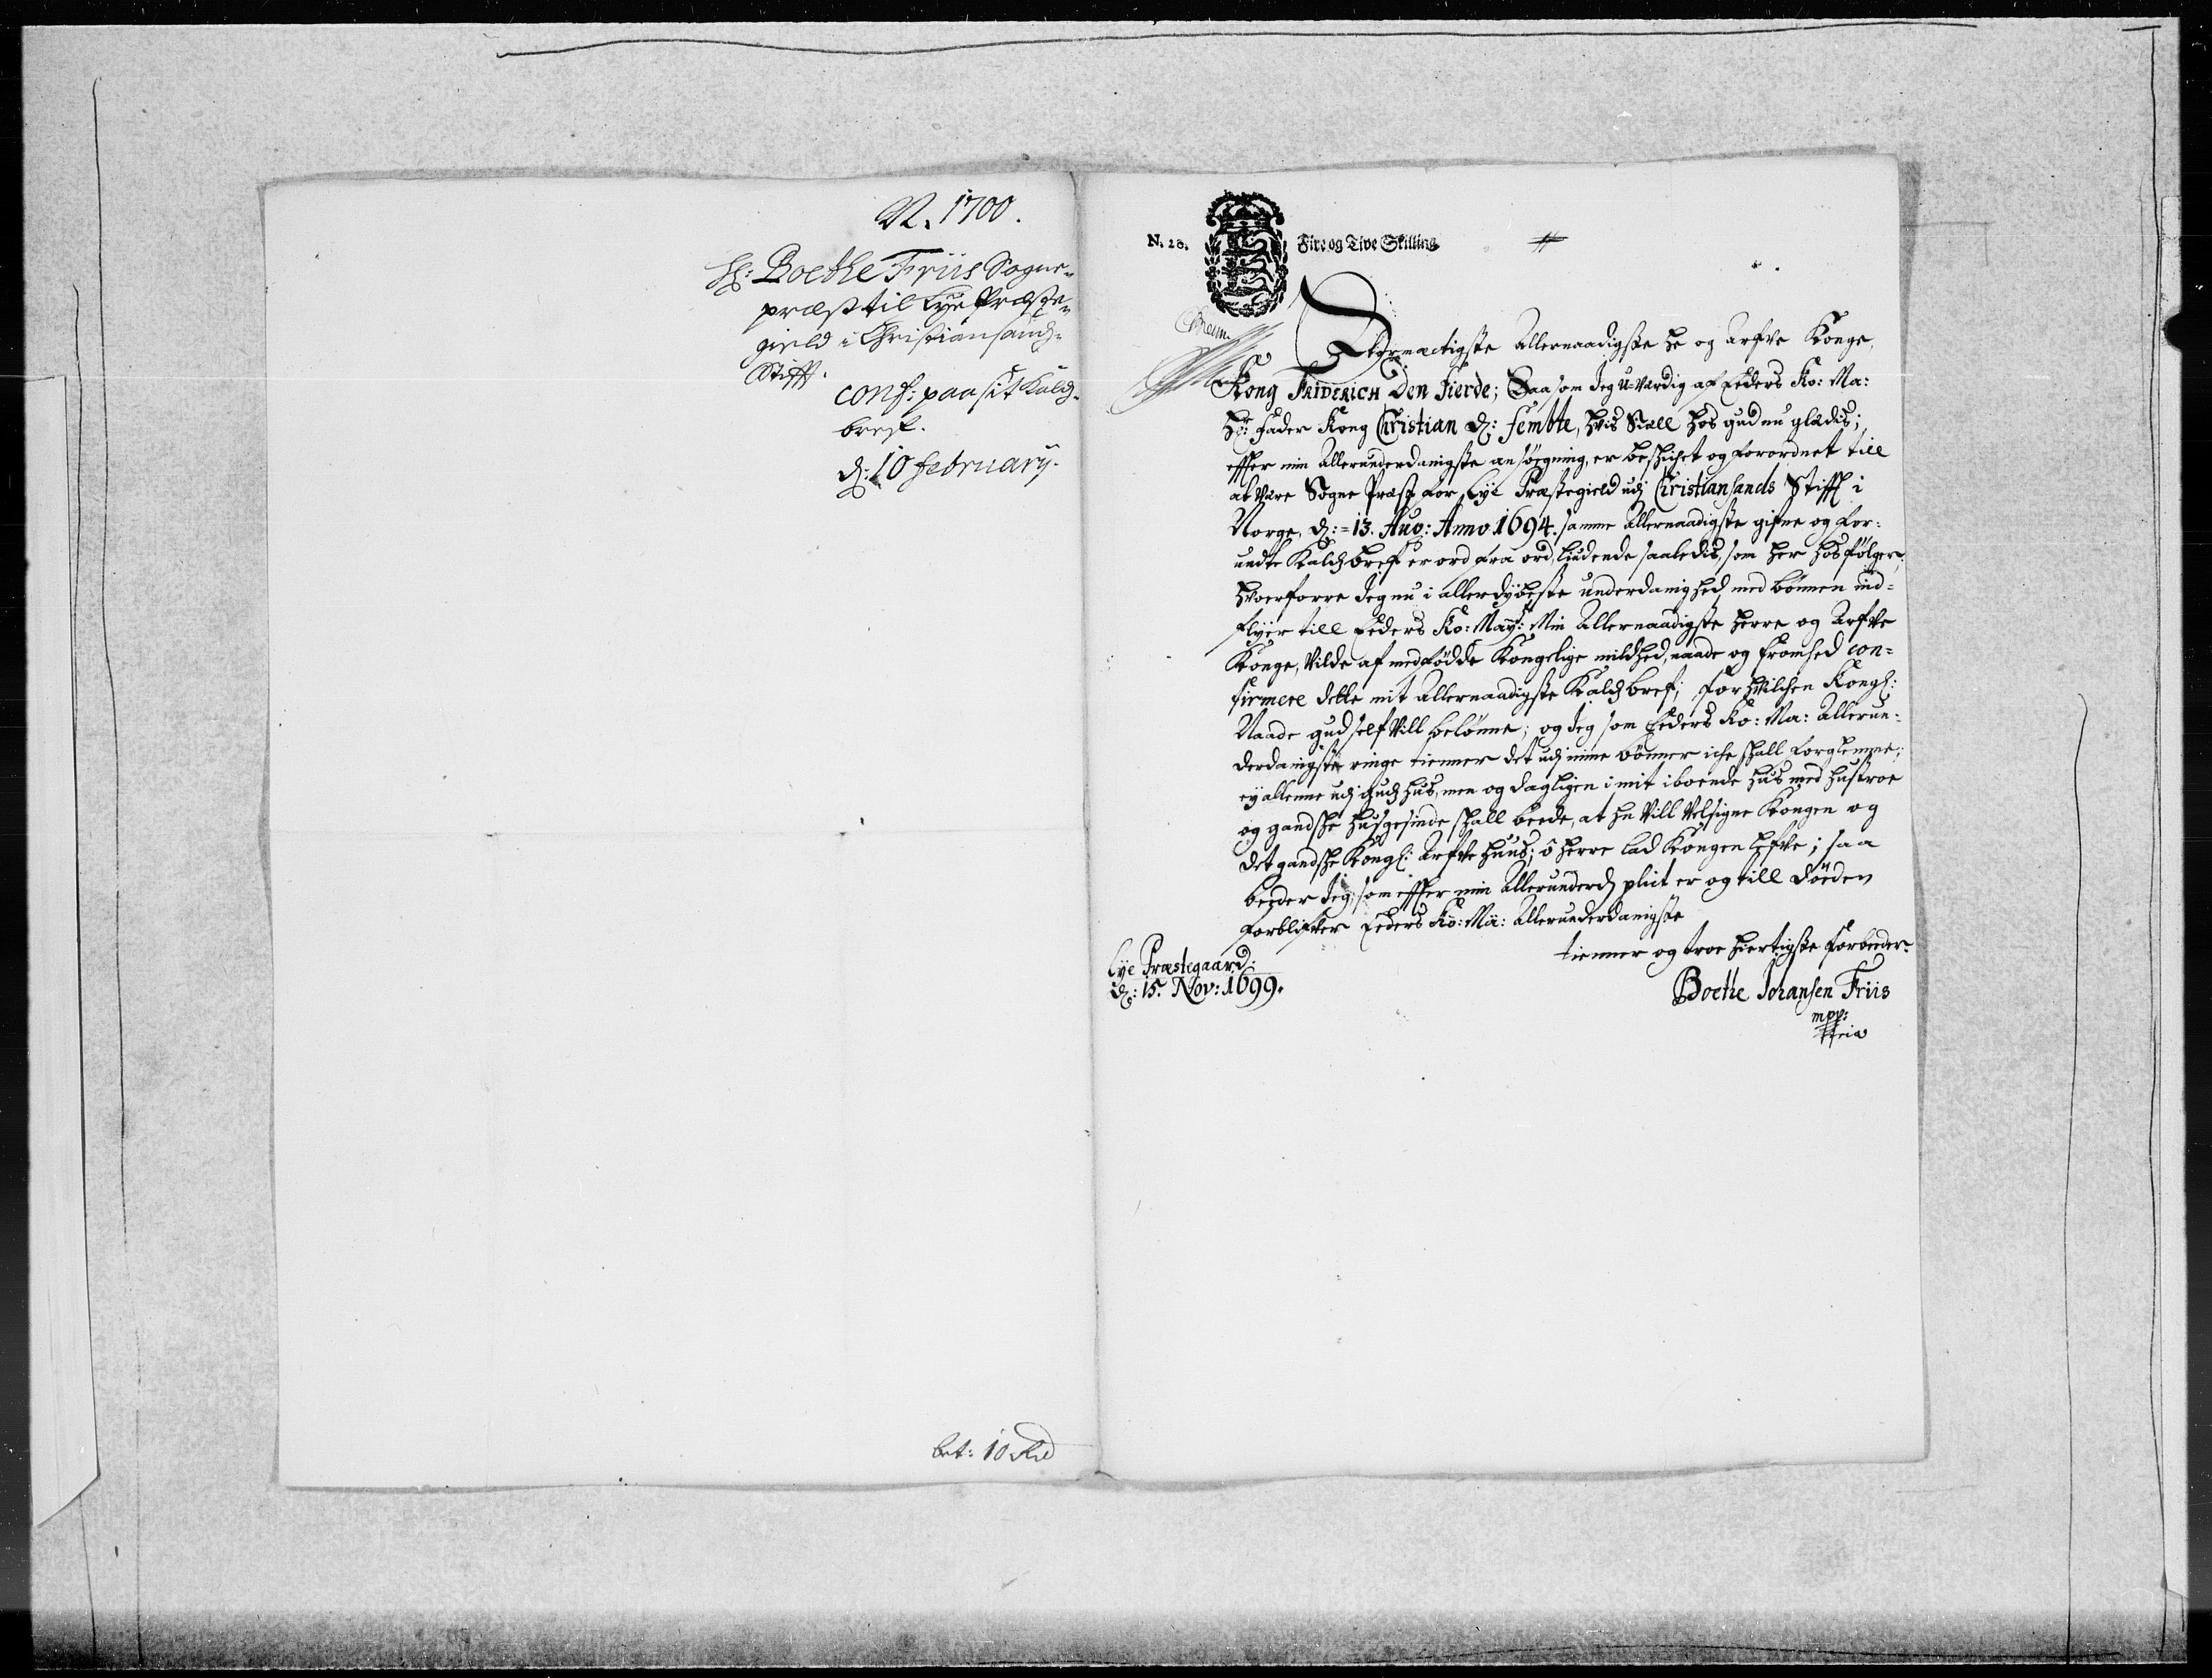 N. 1700.
Hr: Boethe Friis Sogne-
præst til Lye Præste-
gield i Christiansands
Stifft.
conf: paa sit Kalds-
bref.
d: 10 February.
bet: 10 Rd
N. 28. Fire og Tive Skilling
Stormectigste Allernaadigste he og Arfve Konge,
Kong FRIDERICH Den Fierde; Saasom Jeg U-værdig af Eders Ko: Ma:
Hö: Fader Kong Christian d: Fembte, hvis Siæll hos gud nu glædis;
effter min Allerunderdanigste ansøgning, er beskichet og forordnet till
at være Sogne Præst for Lye Præstegield udj Christiansands Stifft i
Norge, d: 13. Aug: Anno 1694. samme Allernaadigste gifne og for-
undte Kaldsbref er ord fra ord, liudende saaledis, som her hos følger;
hvorforre Jeg nu i allerdybeste underdanighed med bönnen ind-
flyer till Eders Ko: May: Min Allernaadigste Herre og Arfve
Konge, Vilde af medfödde Kongelige mildhed, naade og fromhed con-
firmere dette mit Allernaadigste Kaldsbref; for hvilchen Kongl:
Naade gud self vill belönne; og Jeg som Eders Ko: Ma: Allerun-
derdanigste ringe tienner det udj mine bönner iche skall forglemme;
ey allenne udj Guds hus, men og dagligen i mit iboende hus med hustroe
og gandske husgesinde skall beede, at he vill Velsigne Kongen og
det gandske Kongl: Arfve Huus; ô herre lad Kongen lefve; saa
beeder Jeg, som effter min Allerunderd: plict er og till döeden
forblifver Eders Ko: Ma: Allerunderdanigste
tienner og troe hiertigste forbeder
Lye Præstegaard:
d: 15. Nov: 1699.
Boethe Johansen Friis
mpp: